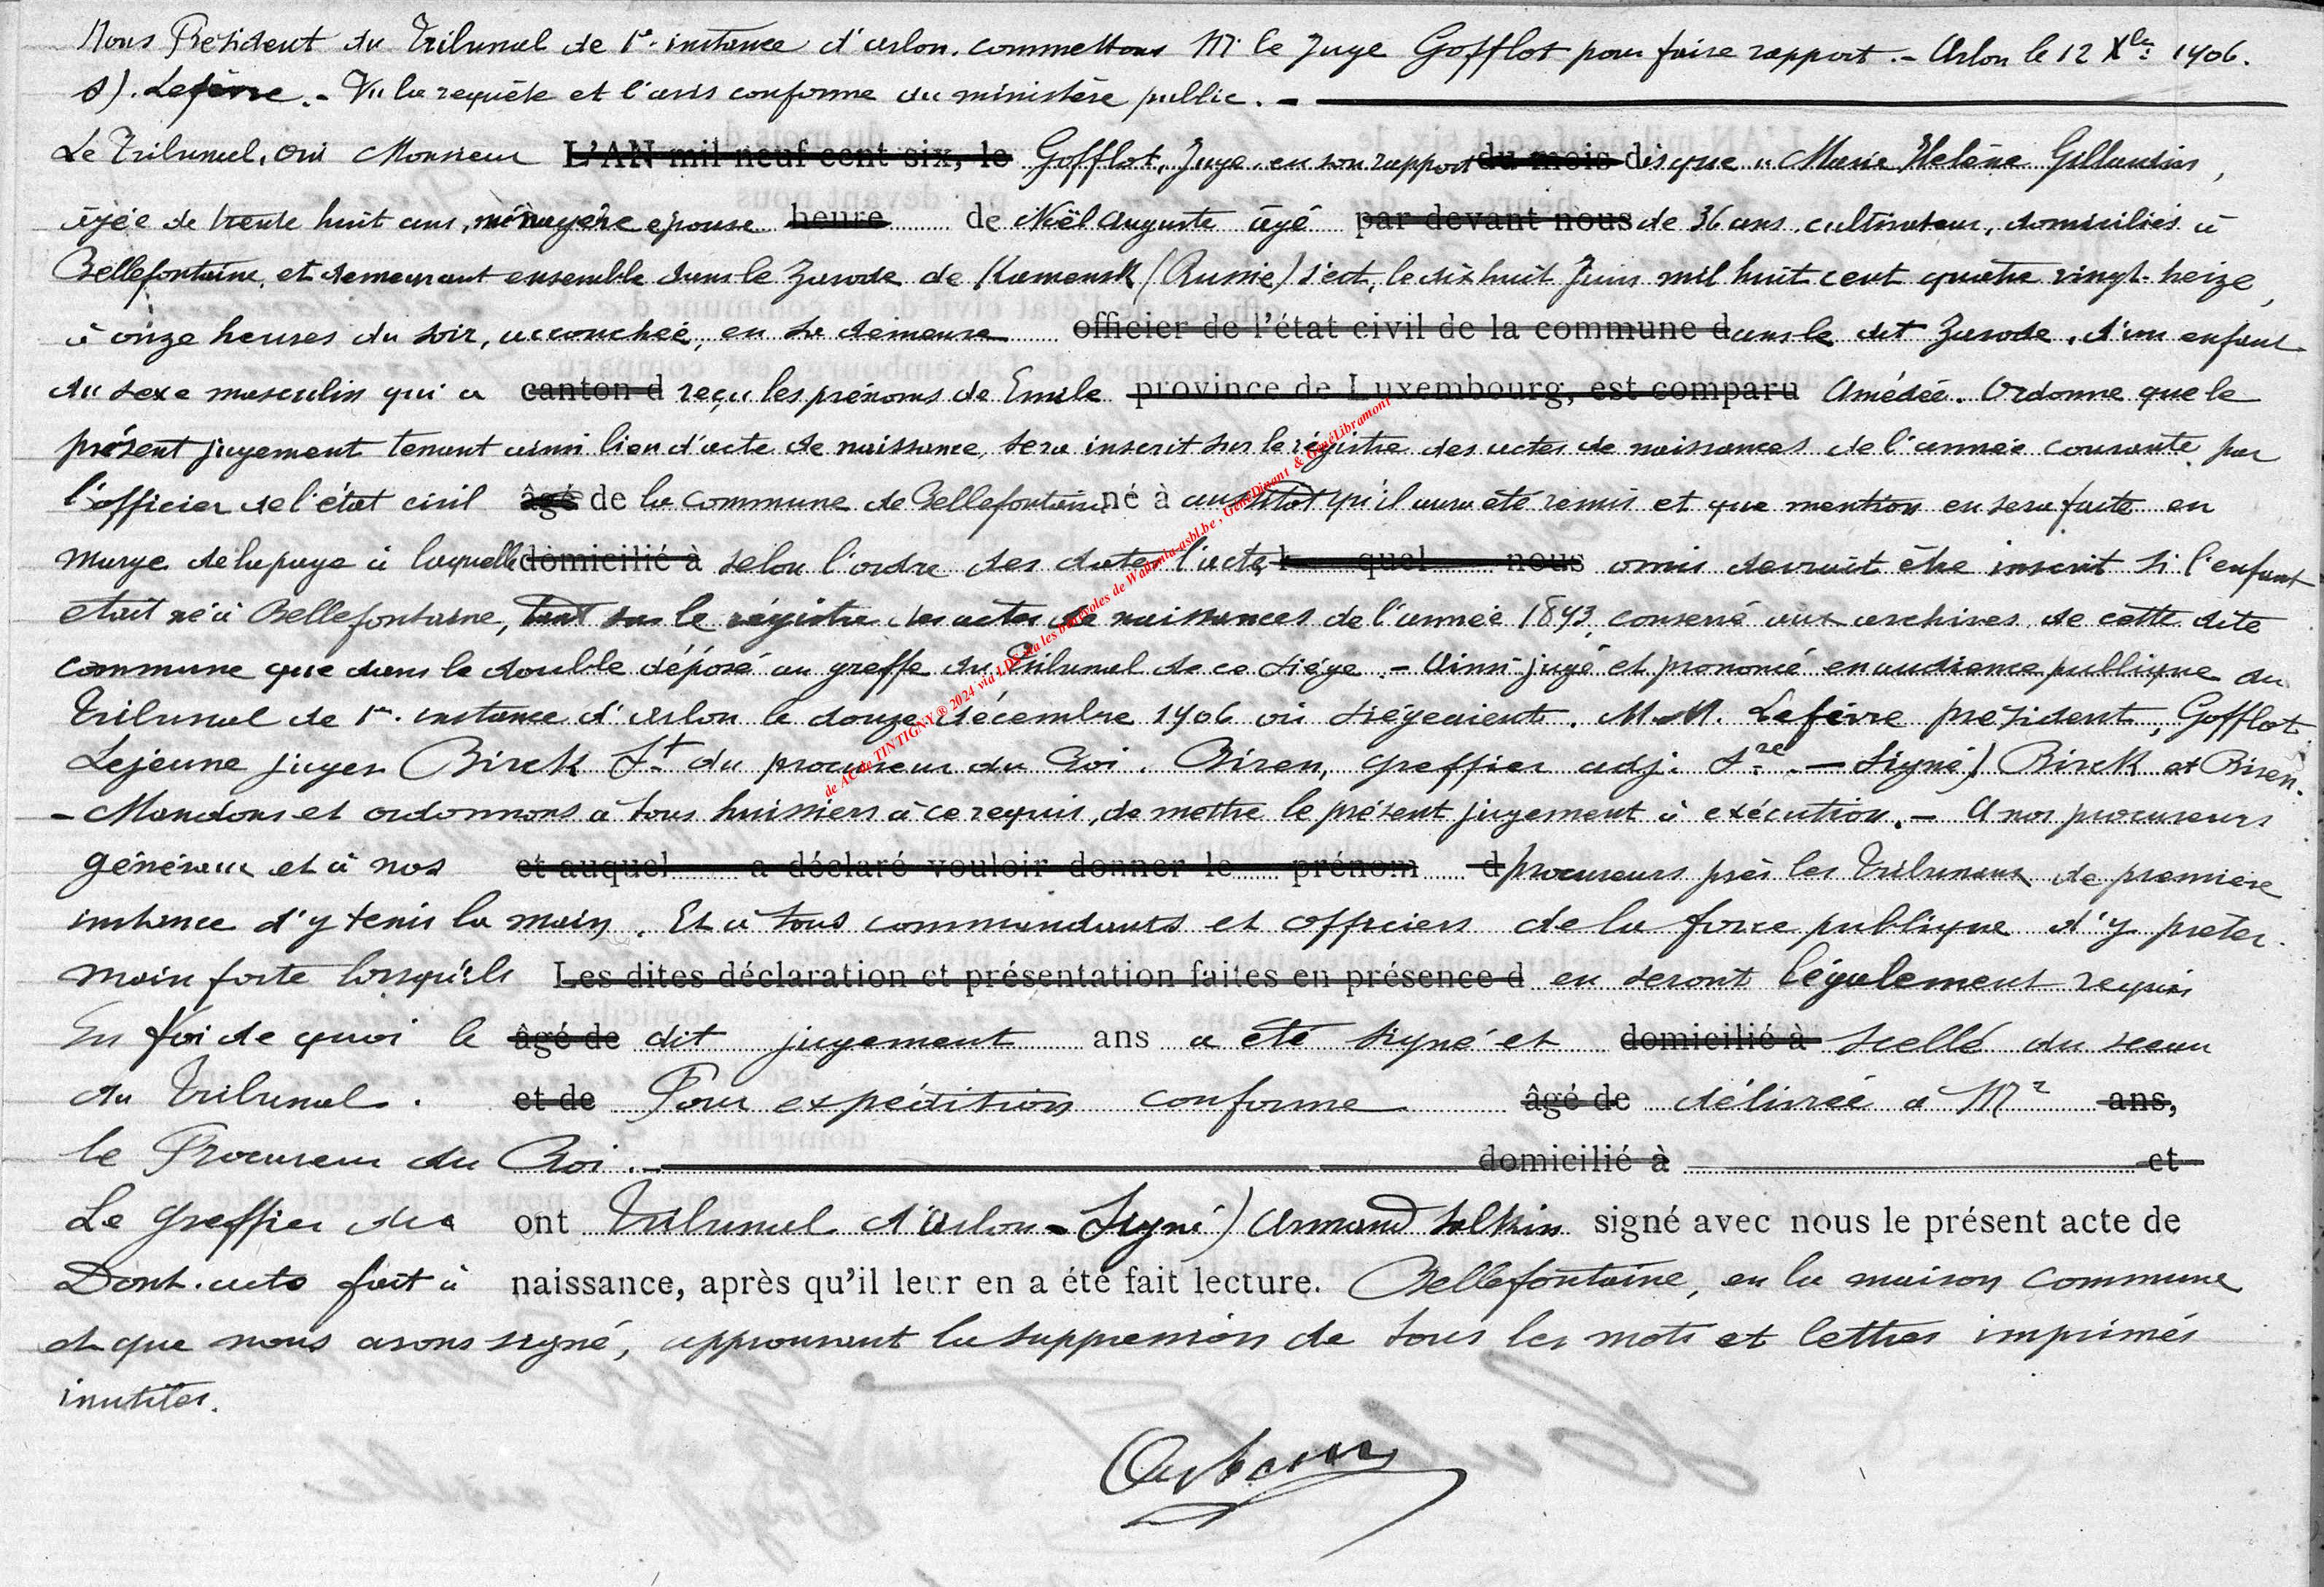 Nous Président du Tribunal de 1re instance d'Arlon commettons Mr le Juge Gofflot pour faire rapport. - Arlon le 12 Xbre 1906.
s). Lefèvre. - Vu la requête et l'avis conforme du ministère public. -
Le Tribunal, oui Monsieur L'AN mil neuf cent six, le Gofflot, Juge en son rapport du mois d is que Marie Hélène Gillardin,
âgée de trente huit ans, ménagère épouse heure de Noël Auguste âgé par devant nous de 36 ans cultivateur, domiciliés à
Bellefontaine, et demeurant ensemble dans le Zavode de Kamensk (Russie) s'est, le dix huit Juin mil huit cent quatre vingt-treize,
à onze heures du soir, accouchée, en sa demeure officier de l'état civil de la commune dans le dit Zavode, d'un enfant
du sexe masculin qui a canton d reçu les prénoms de Emile province de Luxembourg, est comparu Amédée. Ordonne que le
présent jugement tenant ainsi lieu d'acte de naissance, sera inscrit sur le régistre des actes de naissances de l'année courante par
l'officier de l'état civil âgé de la commune de Bellefontaine né à aussitôt qu'il aura été remis et que mention en sera faite en
marge de la page à laquelle domicilié à selon l'ordre des dates l'acte l quel nous omis devrait être inscrit si l'enfant
était né à Bellefontaine, tant sur le régistre des actes de naissances de l'année 1893, conservé aux archives de cette dite
commune que dans le double déposé au greffe du Tribunal de ce siége. - Ainsi jugé et prononcé en audience publique du
Tribunal de 1re instance d'Arlon le douze décembre 1906 où siégeaient. M.M. Lefèvre président, Gofflot
Lejeune juges Birck St du procureur du Roi. Biren, greffier adj. Sre. - Signé) Birck et Biren.
- Mandons et ordonnons à tous huissiers à ce requis, de mettre le présent jugement à exécution. - A nos procureurs
généraux et à nos et auquel a déclaré vouloir donner le prénom d procureurs près les Tribunaux de première
instance d'y tenir la main. Et à tous commandants et officiers de la force publique d'y prêter
main forte lorsqu'ils Les dites déclaration et présentation faites en présence d en seront légalement requis
En foi de quoi le âgé de dit jugement ans a été signé et domicilié à scellé du sceau
du Tribunal. et de Pour expédition conforme âgé de délivrée à Mr ans,
le Procureur du Roi. domicilié à et
Le Greffier du ont Tribunal d'Arlon - Signé) Armand signé avec nous le présent acte de
Dont acte fait à naissance, après qu'il leur en a été fait lecture. Bellefontaine, en la maison commune
et que nous avons signé, approuvant la suppression de tous les mots et lettres imprimés
inutiles.
de AC de TINTIGNY ® 2024 via LDS via les bénévoles de Wallonia-asbl.be, GénéDinant & GénéLibramont